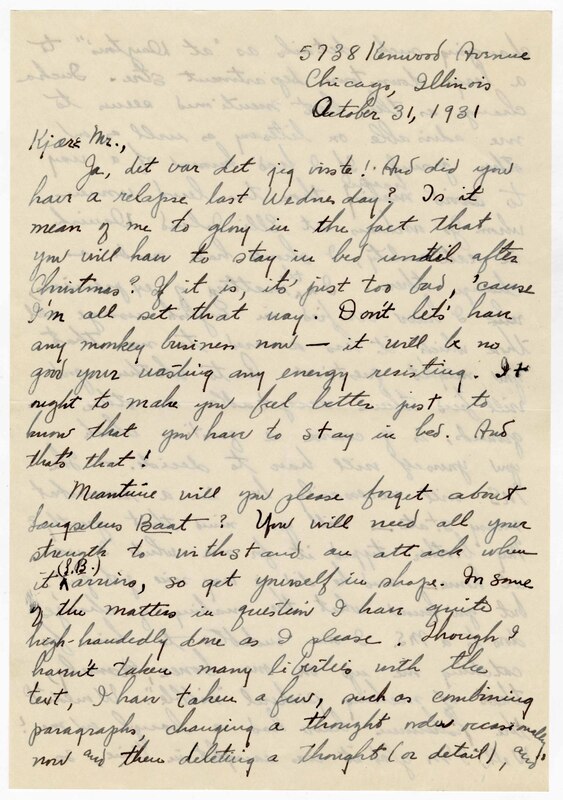 5738 Kenwood Avenue
Chicago, Illinois
October 31, 1931
Kjære Mr.,
Ja, det var det jeg viste! And did you
have a relapse last Wednesday? Is it
mean of me to glory in the fact that
you will have to stay in bed until after
Christmas? If it is, it's just too bad, 'cause
I'm all set that way. Don't let's have
any monkey business now — it will be no
good your wasting any energy resisting. It
ought to make you feel better just to
know that you have to stay in bed. And
that's that!
Meantime will you please forget about
Baat? You will need all your
strength to withstand an attack when
it (S.B.) arrives, so get yourself in shape. In some
of the matters in question I have quite
high-handedly done as I please. Though I
haven't taken many liberties with the
text, I have taken a few, such as combining
paragraphs, changing a thought order occasionally
now and then deleting a thought (or detail), and